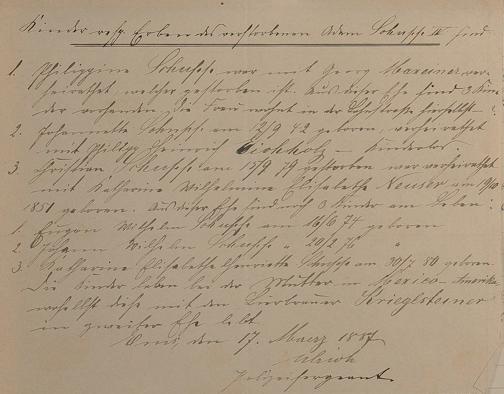 Kinder resp. Erben des verstorbenen Adam Schupp IV sind
1. Philippine Schupp war mit Georg Mareiner ver-
heirathet, welcher gestorben ist. Aus dieser Ehe sind 3 Kin-
der vorhanden. Die Frau wohnt in der hierselbst
2. Johannette Schupp am geboren, verheirathet
mit Philipp Heinrich Eichholz – kinderlos.
3. Christian Schupp am 15/9 79 gestorben war verheirathet
mit Katharine Wilhelmine Elisabethe Neuser am
1851 geboren. Aus dieser Ehe sind noch 3 Kinder am Leben:
1. Eugen Wilhelm Schupp am 16/6 74 geboren
2. Johann Wilhelm Schupp " 20/2 76 "
3. Katharine Elisabethe Henriette Schupp am 30/7 80 geboren
Die Kinder leben bei der Mutter in Mexico – Amerika
woselbst diese mit dem Bierbrauer Krieglsteiner
in zweiter Ehe lebt
Ems, den 17. Maerz 1887
Ulrich
Polizeisergeant.